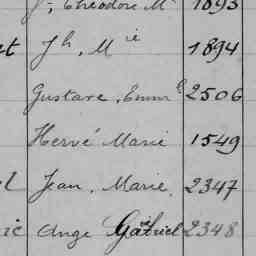 J, Théodore Mie 1893
et Jh, Mie 1894
Gustave, Emmle 2506
Hervé Marie 1549
l Jean, Marie, 2347
ic Ange Gabriel 2348